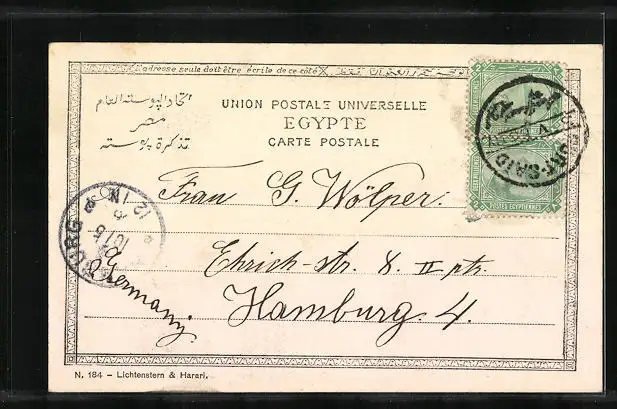 L'adresse seule doit être écrite de ce côté
اتحاد البوسته العام
مصر
تذكرة بوسته
UNION POSTALE UNIVERSELLE
EGYPTE
CARTE POSTALE
PORT-SAID
POSTES EGYPTIENNES
Frau G. Wölper.
Ehrich-str. 8. II ptr.
Hamburg. 4.
Germany.
N. 184 – Lichtenstern & Harari.